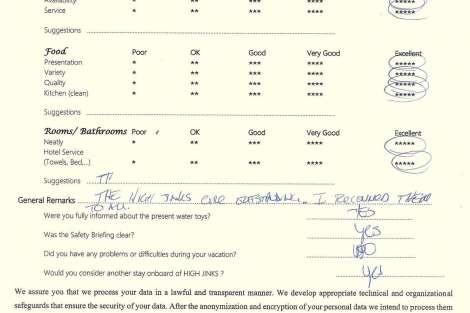 Availability * ** *** **** *****
Service * ** *** **** *****
Suggestions
Food Poor OK Good Very Good Excellent
Presentation * ** *** **** *****
Variety * ** *** **** *****
Quality * ** *** **** *****
Kitchen (clean) * ** *** **** *****
Suggestions
Rooms/ Bathrooms Poor OK Good Very Good Excellent
Neatly * ** *** **** *****
Hotel Service
(Towels, Bed,...) * ** *** **** *****
Suggestions
General Remarks THE HIGH JINKS OUTSTANDING. I THEM
TO ALL.
Were you fully informed about the present water toys? YES
Was the Safety Briefing clear? YES
Did you have any problems or difficulties during your vacation? NO
Would you consider another stay onboard of HIGH JINKS ? Yes
We assure you that we process your data in a lawful and transparent manner. We develop appropriate technical and organizational
safeguards that ensure the security of your data. After the anonymization and encryption of your personal data we intend to process them